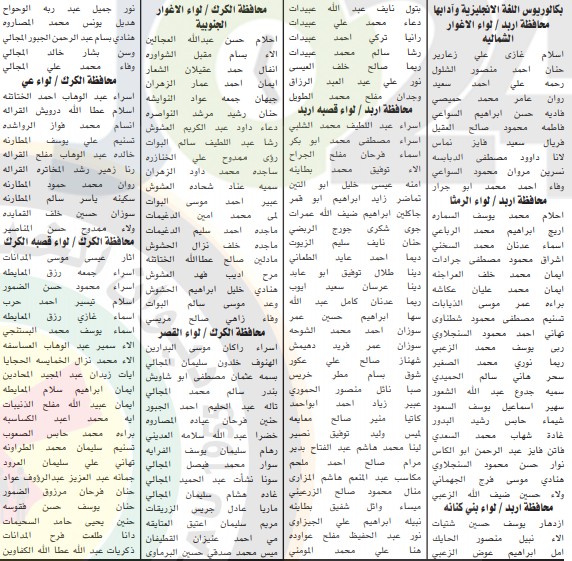 بكالوريوس اللغة الانجليزية وآدابها
محافظة اربد / لواء الاغوار
الشماليه
اسلام غازي علي زعارير
حنان احمد منصور الشلول
رحمه علي احمد سعيد
روان عامر محمد حميصي
فاديه حسن ابراهيم السواعي
فاطمه محمود صالح العقيل
فريال سعيد فايز نماس
لانا داوود مصطفى الدبابسه
نسرين مروان محمود السواعي
وفاء احمد محمد ابو جرار
محافظة اربد / لواء الرمثا
احلام محمد يوسف السماره
اريج ابراهيم محمد الرباعي
اسماء عدنان محمد السخني
اشراق محمود مصطفى جرادات
ايمان محمد خلف العراجنه
ايمان محمد عليان عكاشه
براءه عمر موسى الذيابات
تسنيم مصطفى محمود شطناوي
تهاني احمد محمود السنجلاوي
ربى يوسف محمد الزعبي
ريما نوري محمد الصغير
سحر هاني سالم الحميدي
سميه جدوع عبد الله الشعور
سهير اسماعيل يوسف السعود
شيماء حابس رشيد البدور
غادة شهاب محمد السعدي
فاتن فايز عبد الرحمن ابو الكاس
نوار حسن محمود السنجلاوي
هنادي موسى فرج الجهماني
ولاء حسين ضيف الله الزعبي
محافظة اربد / لواء بني كنانه
ازدهار يوسف حسين شتيات
الاء نبيل منصور الحايك
امل ابراهيم عوض الزعبي
بتول نايف عبد الله عبيدات
دعاء محمد علي عبيدات
رانيا تركي احمد عبيدات
رشا سالم محمد عبيدات
ريما صالح خلف العيسى
نور علي عبد العبد الرزاق
وجدان مفلح محمد الطويل
محافظة اربد / لواء قصبه اربد
اسراء عبد اللطيف محمد الشلبي
اسراء مصطفى محمد ابو بكر
اسماء فرحان مفلح الجراح
الاء توفيق محمد بطاينه
امنه عيسى خليل ابو التين
تماضر زايد ابراهيم ابو قمر
جاكلين ابراهيم ضيف الله عمرات
جوى شكري جورج الربضي
حنان نايف سليم الزيوت
ديما احمد عايد الطعاني
دينا طلال توفيق ابو عابد
دينا عرسان سعيد ايوب
ريما عدنان كامل عبد الله
سها ابراهيم حسين عمر
سوزان احمد محمد الشوحه
سوزان عمر فريد دهيمش
شهناز صالح علي عكور
شوق بسام مطر خريس
صبا نائل منصور الحموري
عبير زياد احمد ابواحمد
كاتيا منير صالح معايعه
ليس وليد توفيق نصير
لينا محمد هاشم عبد الفتاح بدير
مرام صالح احمد ملحم
مكاسب عبد المنعم هاشم المزاري
منال محمود صالح الزرعيني
ميساء وائل شفيق بطاينه
نبيله ابراهيم علي الجيزاوي
نور عبد الحفيظ مفلح عواوده
هنا علي محمد المومني
محافظة الكرك / لواء الاغوار
الجنوبية
احلام حسن عبدالله العجالين
الاء بسام مقبل الشواوره
انفال حمد عقيلان الشعار
ايمان احمد عمار الزهران
جيهان جمعه عواد النوايشه
حنان رشيد مرشد النواصره
دعاء داود عبد الكريم العشوش
رشا عبد اللطيف سالم البوات
رؤى ممدوح علي الخنازره
ساجده محمد داود الزهران
سميه عناد شحاده العشوش
عبير احمد موسى البوات
لمى محمد امين الدغيمات
ماجده احمد سليم الدغيمات
ماجده خلف نزال الحشوش
مادلين صالح عطاالله الختاتنه
مرح اديب فهد العشوش
هنادي خليل ابراهيم الحشوش
وعد موسى سالم البوات
وفاء زاهي صالح مريسي
محافظة الكرك / لواء القصر
اسراء راكان موسى البدارين
الهنوف خلدون سليمان المجالي
بسمه عثمان مصطفى ابو شاويش
بندر سالم محمد المجالي
تاله عبد الحليم احمد الجبور
حنين فرحان عياده المصاروه
خضرا عبد الله سلامه العديني
رهام سليمان يوسف القرايه
سوار محمد فيصل المجالي
سونا نشأت عبد الحميد المجالي
غاده هشام سليمان المجالي
ماريا عادل جريس الزريقات
مريم سليمان اعتيق العتايقه
مي احمد عنيزان القطيفان
ميس محمد صدقي حسين البرماوي
نور جميل عبد ربه الوحواح
هديل يونس محمد المصاروه
هنادي بسام عبد الرحمن الجبور المجالي
وسن بشار خالد المجالي
وفاء محمد علي المجالي
محافظة الكرك / لواء عي
اسراء عبد الوهاب احمد الختاتنه
اسلام عطا الله درويش القراله
انسام محمد فواز الرواشده
تسنيم علي يوسف المطارنه
خالده عبد الوهاب مفلح القراله
رنا زهير رشد المخاتره القراله
روان محمد حمود المطارنه
سكينه ياسر سالم المطارنه
سوزان حسين خلف القمايده
ولاء ممدوح حسن المناصير
محافظة الكرك / لواء قصبه الكرك
اثار عيسى موسى المدانات
اسراء جمعه رزق المعايطه
اسراء محمود حسن الضمور
اسلام تيسير احمد حرب
اسماء غازي رزق المعايطه
اسماء يوسف محمد البستنجي
الاء سمير عبد الوهاب العساسفه
الاء محمد نزال الخمايسه الحجايا
ايات زيدان عبد المجيد المحادين
ايمان ابراهيم سلام المعايطه
ايمان عبيد الله مفلح الذنيبات
ايه محمد اعبد الكساسبه
براءه محمد حابس الصعوب
تسنيم سليمان محمد الطراونه
تهاني علي سليمان العرود
جمانه عبد العزيز عبدالرؤوف عواد
حنان فرحان مرزوق الضمور
حنان يوسف حسن قنتوسه
حنين يحيى حامد السحيمات
دانا طلعت فرح المدانات
ذكريات عبد الله عطا الله الكفاوين